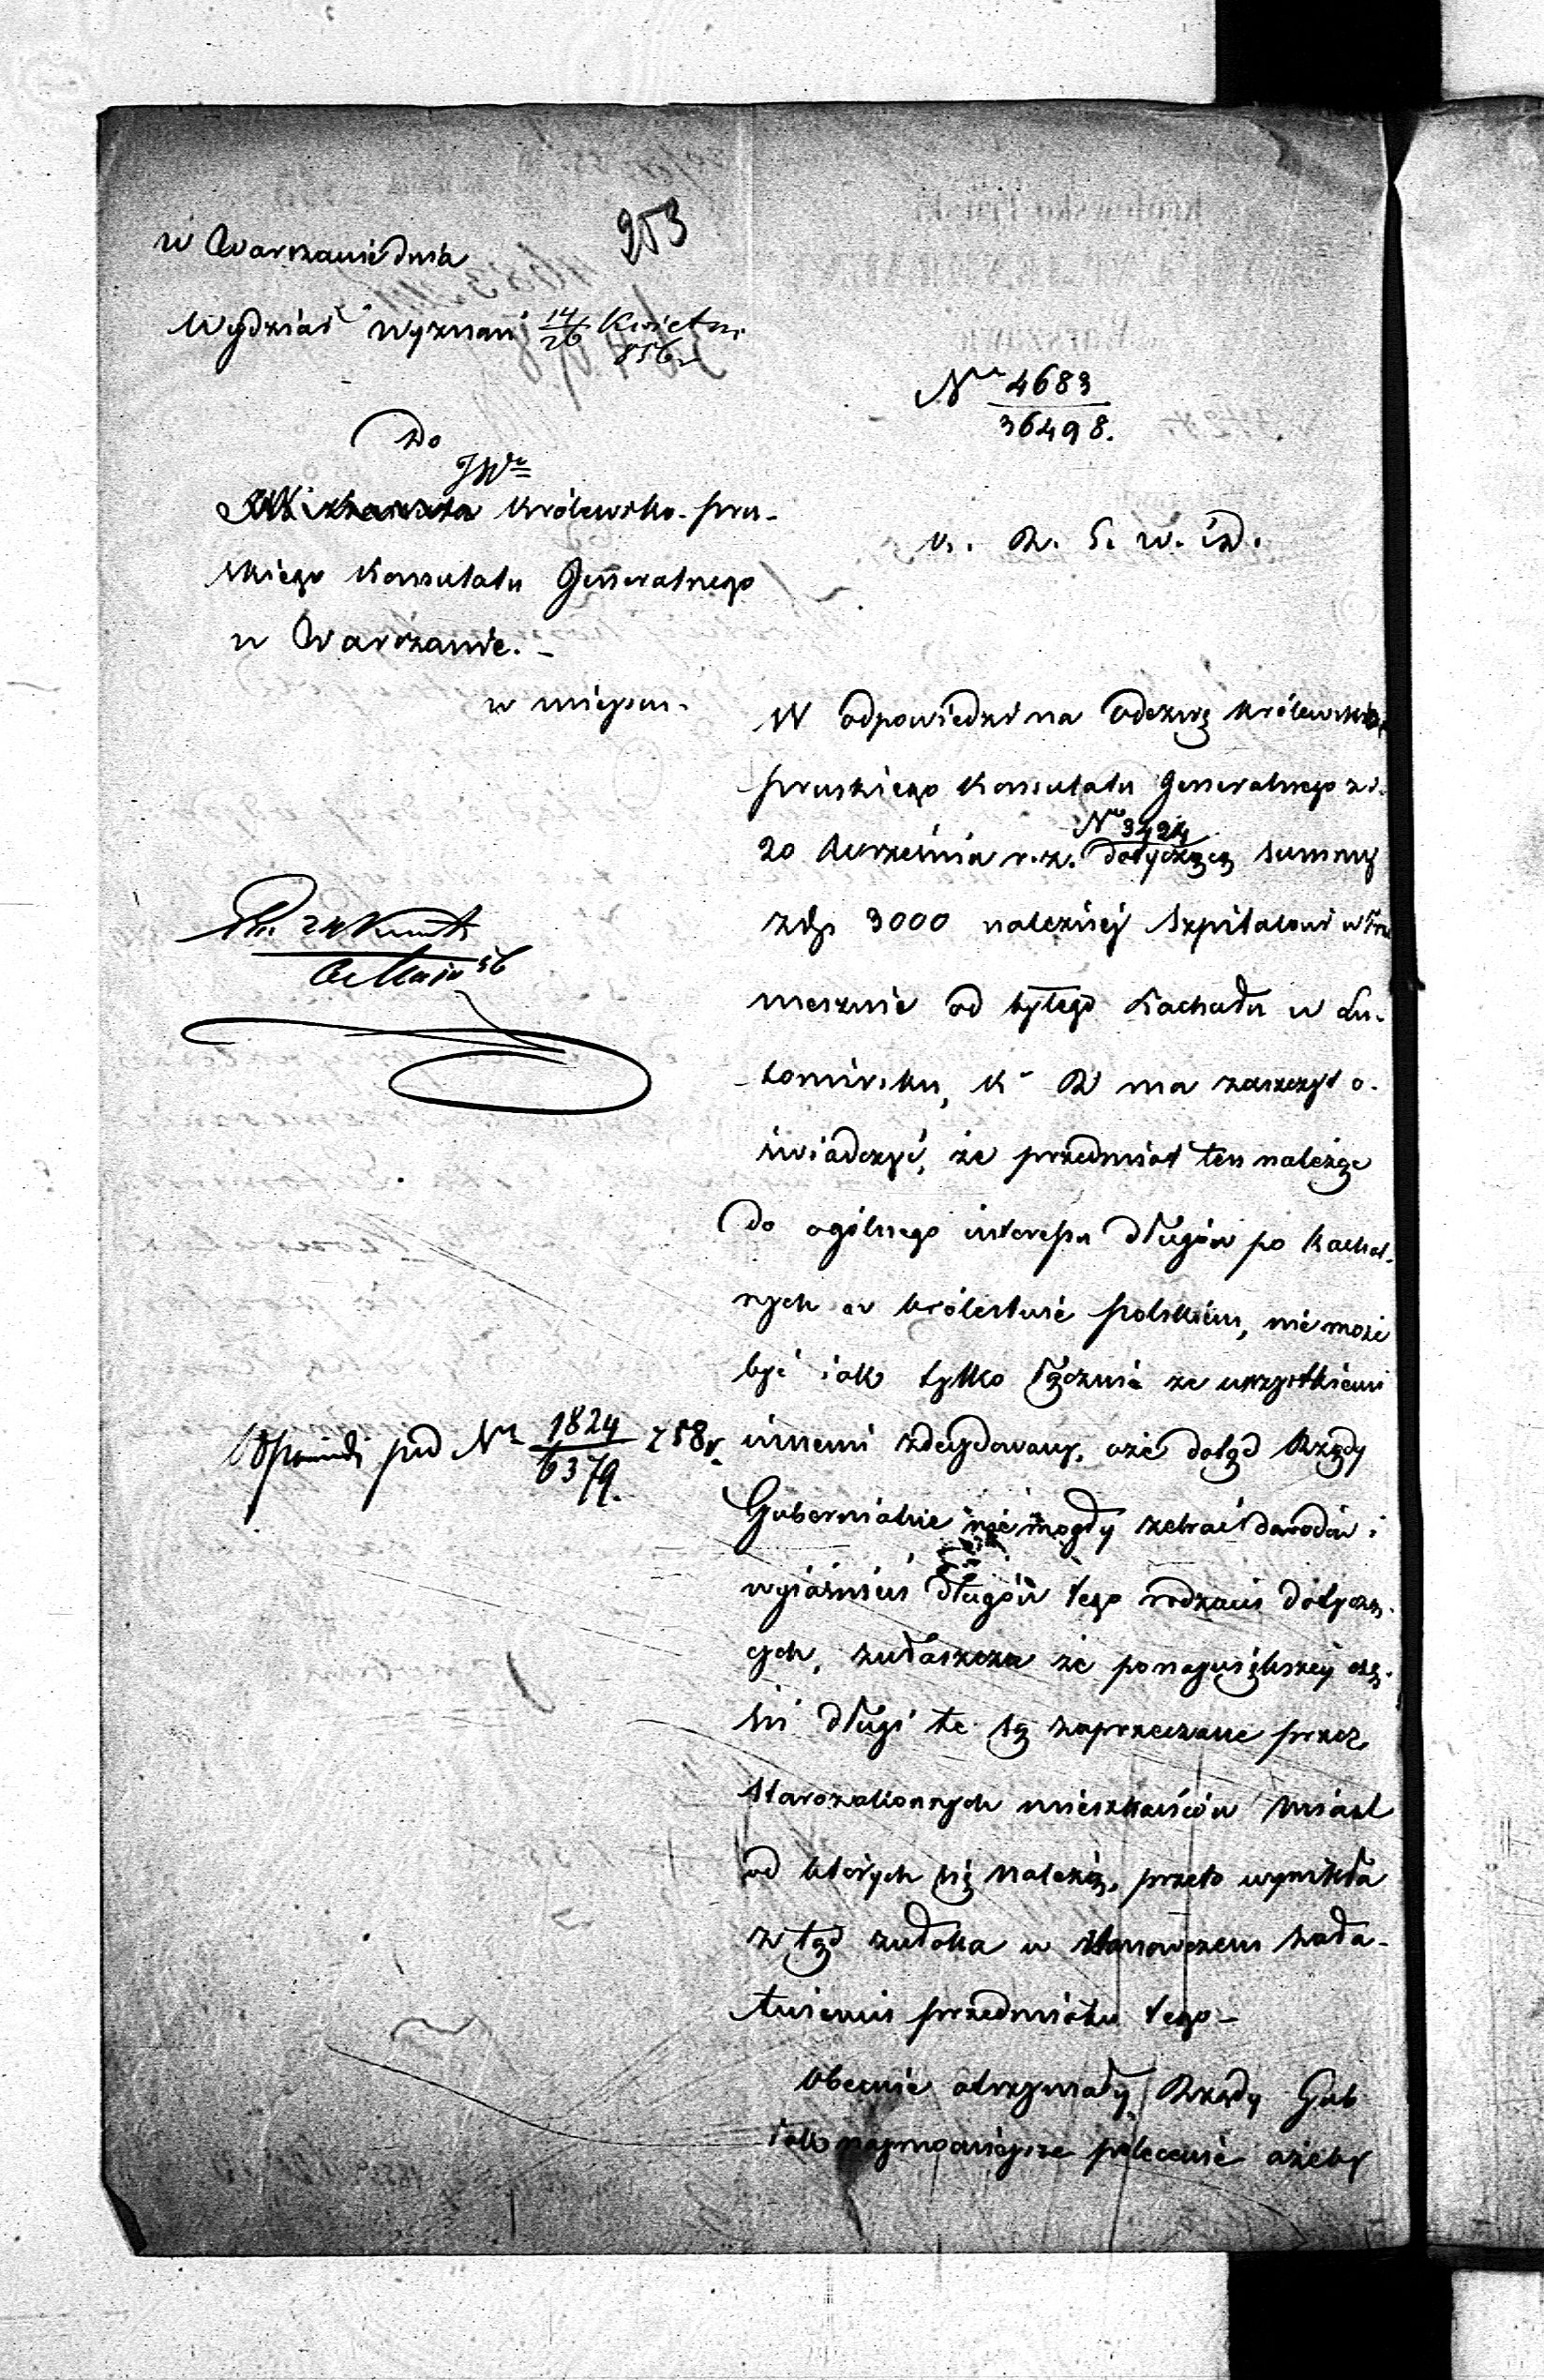 253
w Warszawie dnia
Wydział Wyznań 14/26 Kwietni
856 r
No 4683
36498.
Do
JW
Królewsko-pru-
skiego Konsulatu Generalnego
w Warszawie. -
w miejscu.
K. R. S. W. i D.
W odpowiedzi na odezwę Królewsko
pruskiego Konsulatu Generalnego z d.
No 3424
20 Września r. z. dotyczącą summy
złp 3000 należnéj Szpitalowi w Trze
mesznie od byłego Kachału w Lu-
tomirsku, K R ma zaszczyt o-
świadczyć, że przedmiot ten należąc
do ogólnego interessu długów po kachal-
nych w Królestwie Polskiem, nie może
być iak tylko łącznie ze wszystkiemi
innemi zdecydowany, a że dotąd Rządy
Gubernialne nie mogły zebrać dowodów i
wyiaśnień długów tego rodzaiu dotyczą-
cych, zwłaszcza że po największej czę-
ści długi te są zaprzeczane przez
starozakonnych mieszkańców miast
od których się należą, przeto wynikła
z tąd zwłoka w stanowczem zała-
twieniu przedmiotu tego -
Obecnie otrzymały Rządy Gub
iak najmocniejsze polecenie ażeby
Maja 56
Odpowiedź pod No 1824
6379. z 58 r.